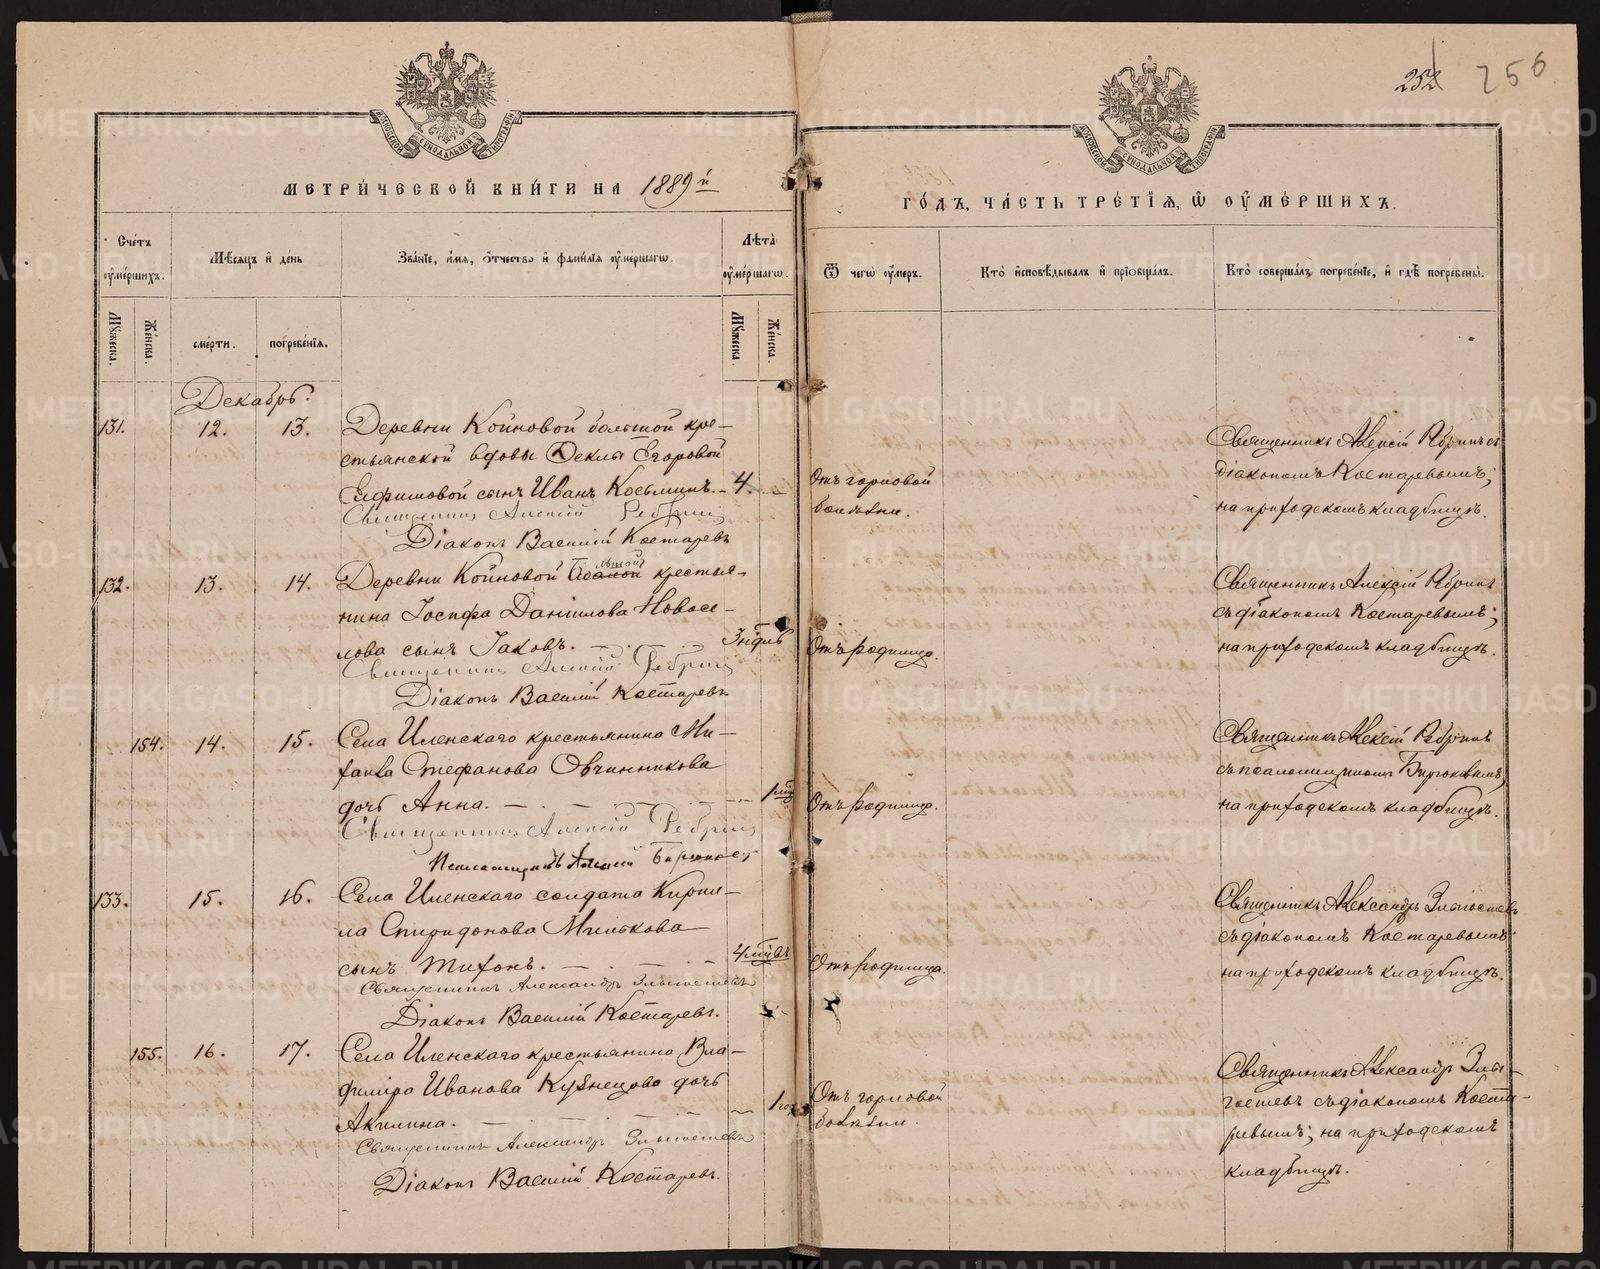 252 256
МОСКОВСКОЙ СѴНОДАЛЬНОЙ ТИПОГРАФІИ
МОСКОВСКОЙ СѴНОДАЛЬНОЙ ТИПОГРАФІИ
МЕТРИ́ЧЕСКОЙ КНИ́ГИ НА 1889й
ГО́ДЪ, ЧА́СТЬ ТРЕ́ТІѦ, Ѿ ОУ҆МЕ́РШИХЪ.
Сче́тъ оу҆ме́ршихъ.
Мѣ́сѧцъ и҆ де́нь
Зва́нїе, и҆́мѧ, ѻ҆́тчество и҆ фами́лїѧ оу҆ме́ршагѡ.
Лѣ́та оу҆ме́ршагѡ.
Ѿ чегѡ̀ оу҆́меръ.
Кто̀ и҆сповѣ́дывалъ и҆ прїѡбща́лъ.
Кто̀ соверша́лъ погребе́нїе, и҆ гдѣ̀ погребены̀.
Мꙋ́жеска.
Же́нска.
сме́рти.
погребе́нїѧ.
Мꙋ́жеска
Же́нска.
Декабрь.
131. 12. 13. Деревни Койновой большой кре-
стьянской вдовы Ѳеклы Егоровой
Елфимовой сынъ Иванъ Косьминъ. 4.
Священникъ Алексій Ребринъ
Діаконъ Василій Костаревъ
Отъ горловой
болѣзни.
Священникъ Алексій Ребринъ съ
діакономъ Костаревымъ;
на приходскомъ кладбищѣ.
132. 13. 14. Деревни Койновой крестья-
нина Іосифа Даніилова Новосе-
лова сынъ Іаковъ. 3 нѣдль
Священникъ Алексій Ребринъ
Діаконъ Василій Костаревъ.
Отъ родимца.
Священникъ Алексій Ребринъ
съ діакономъ Костаревымъ;
на приходскомъ кладбищѣ.
154. 14. 15. Села Иленскаго крестьянина Ми-
хаила Стефанова Овчинникова
дочь Анна. 1 мѣц
Священникъ Алексій Ребринъ
Псаломщикъ Бирюковъ
Отъ родимца.
Священникъ Алексій Ребринъ
съ псаломщикомъ Бирюковымъ;
на приходскомъ кладбищѣ.
133. 15. 16. Села Иленскаго солдата Кирил-
ла Спиридонова Милькова
сынъ Тихонъ. 4 мѣцвъ
Священникъ Александръ Злыгостевъ
Діаконъ Василій Костаревъ.
Отъ родимца.
Священникъ Александръ Злыгостевъ
съ діакономъ Костаревымъ;
на приходскомъ кладбищѣ.
155. 16. 17. Села Иленскаго крестьянина Вла-
диміра Иванова Кузнецова дочь
Акилина. 1 год
Священникъ Александръ Злыгостевъ
Діаконъ Василій Костаревъ.
Отъ горловой
болѣзни.
Священникъ Александръ Злы-
гостевъ съ діакономъ Коста-
ревымъ; на приходскомъ
кладбищѣ.
METRIKI.GASO-URAL.RU